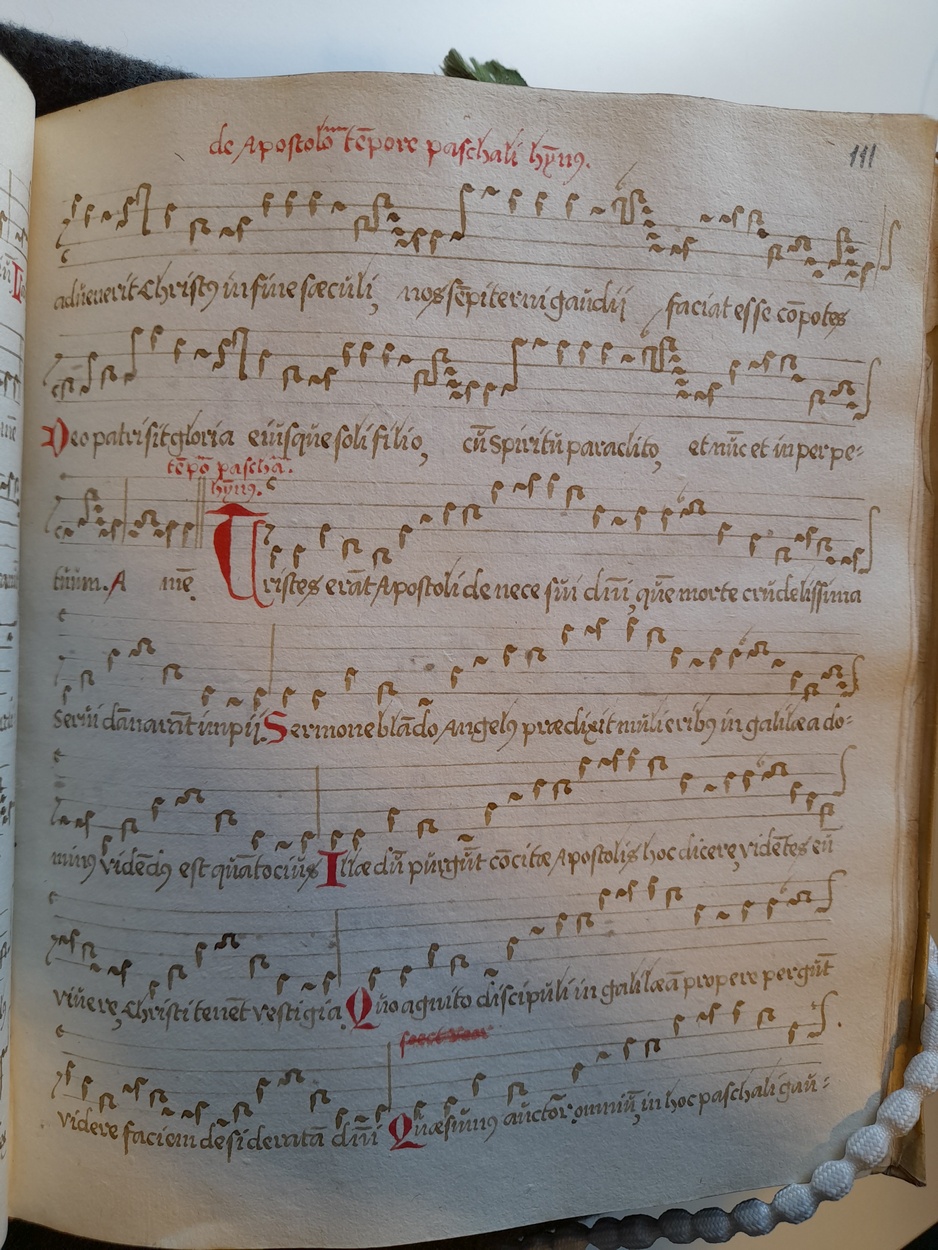 de Apostolo᷑ tēpore paschali hȳnꝰ.
111
adu̇enerit Christꝰ in fine sæcu̇li, nos sēpiterni gau̇dij faciat esse cōpotes
Deo patri sit gloria eiu̇squ̇e soli filio, cu̅ Spiritu̅ paraclito, et nu̅c et in perpe=
tēpō pascha.
hȳnꝰ.
tu̇u̇m. A mē.
Tristes erāt Apostoli de nece su̇i dn̄i, qu̇ē morte cru̇delissima
Seru̇i dānarāt impij. Sermone blādo Angelꝰ prædixit mu̇lieribꝰ in galilæa do=
minꝰ vidēdꝰ est qu̇ātociu̇s Illæ du̅ pu̇rgu̅t cōcitæ Apostolis hoc dicere, vidētes eu̅
viu̇ere, Christi tenēt vestigia. Qu̇o agnito discipu̇li in galilæā propere pergu̅t
videre faciem desideratā dn̄i Qu̇æsu̇mꝰ au̇ctor omniu̅, in hoc paschali gau̇=